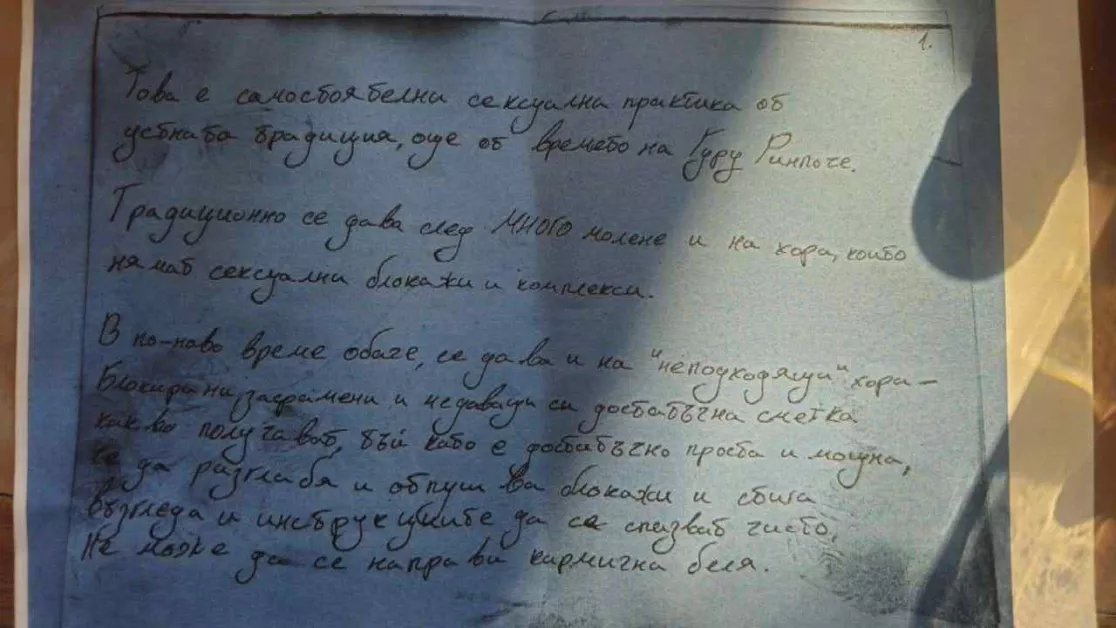 1.
Това е самостоятелна сексуална практика от
устната традиция, още от времето на Гуру Ринпоче.
Традиционно се дава след МНОГО молене и на хора, които
нямат сексуални блокажи и комплекси.
В по-ново време обаче, се дава и на "неподходящи" хора –
блокирани, засрамени и недаващи си достатъчна сметка
какво получават, тъй като е достатъчно проста и мощна,
че да разглабя и отпушва блокажи и стига
възгледа и инструкциите да се спазват чисто,
не може да се направи кармична беля.